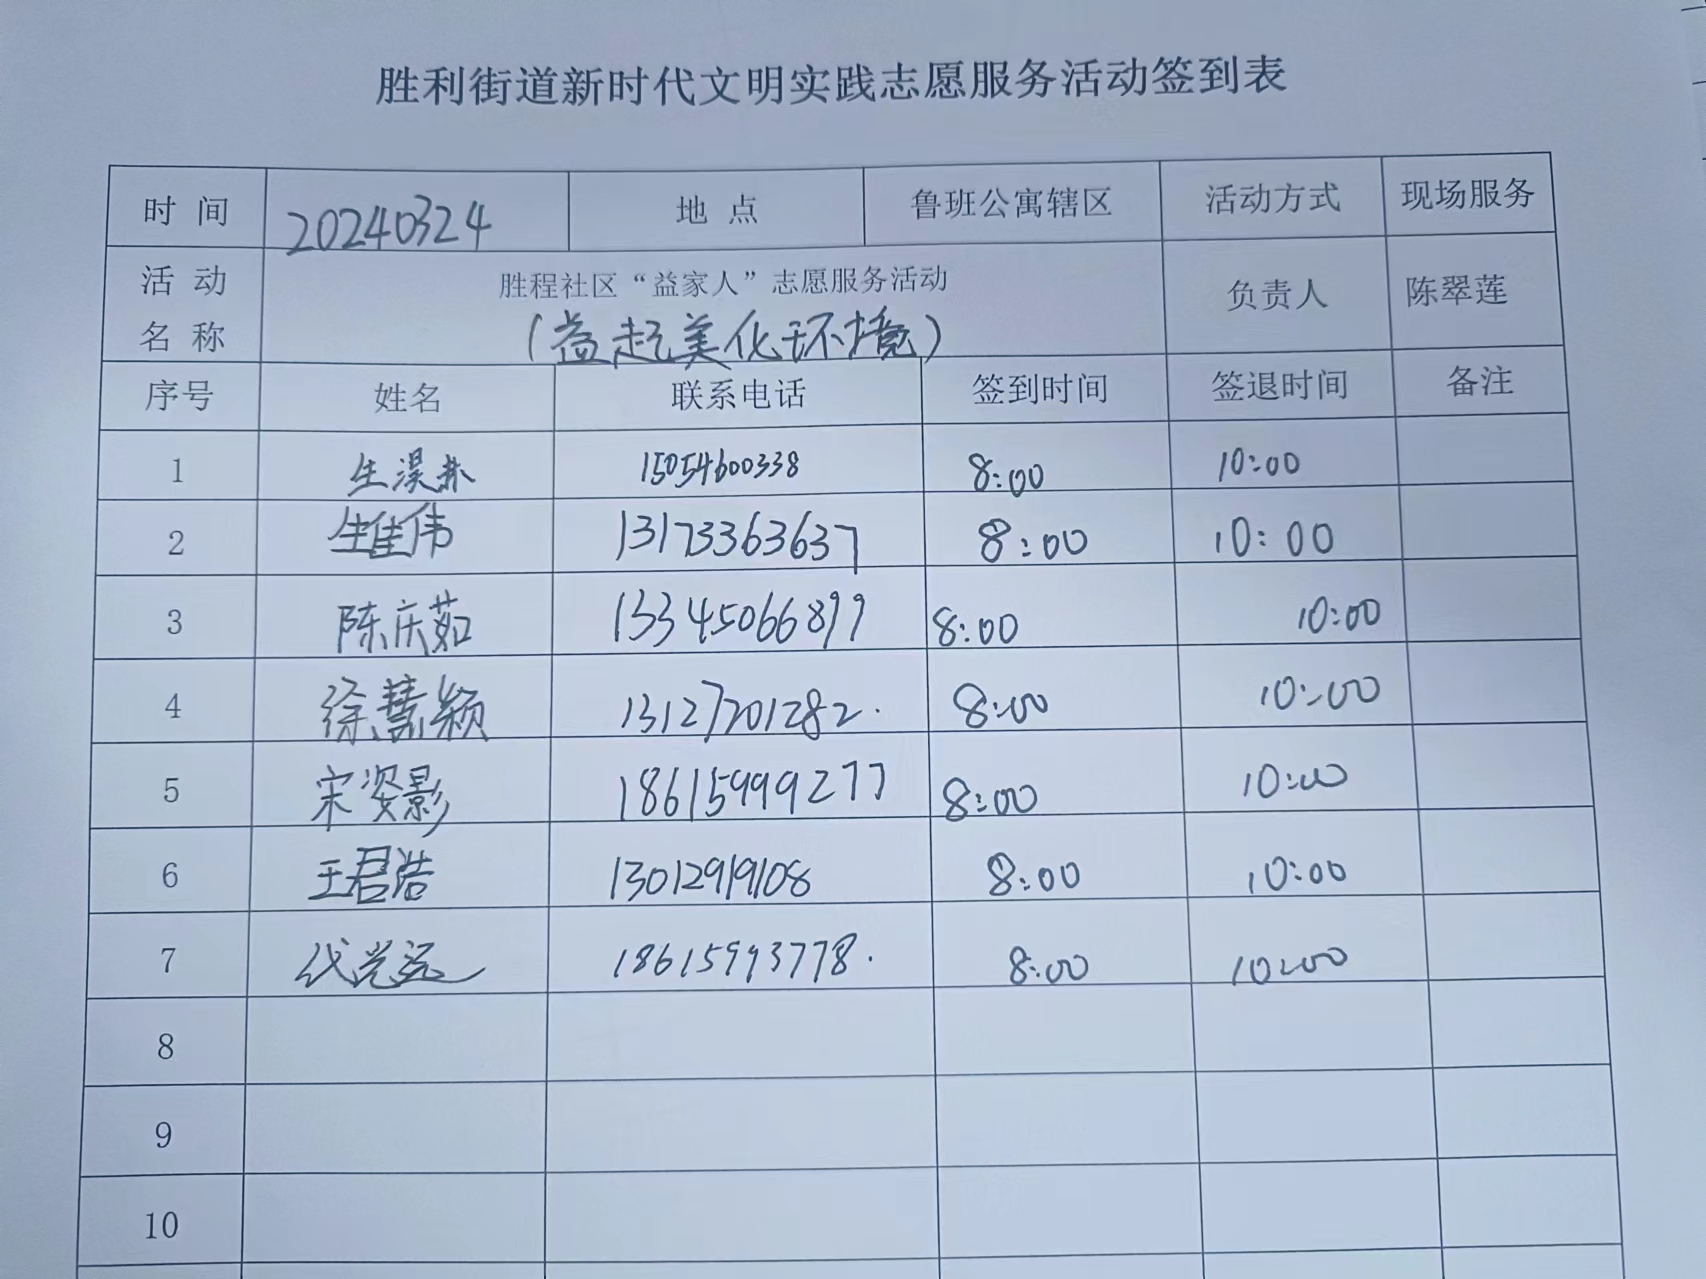 胜利街道新时代文明实践志愿服务活动签到表
时 间 20240324 地 点 鲁班公寓辖区 活动方式 现场服务
活 动 名 称 胜程社区“益家人”志愿服务活动 负责人 陈翠莲
(益起美化环境)
序号 姓名 联系电话 签到时间 签退时间 备注
1 生淏 15054600338 8:00 10:00
2 生佳伟 13173363637 8:00 10:00
3 陈庆茹 13345066899 8:00 10:00
4 徐慧颖 13127201282. 8:00 10:00
5 宋姿影 18615999277 8:00 10:00
6 王君浩 13012919108 8:00 10:00
7 代党远 18615993778. 8:00 10:00
8
9
10